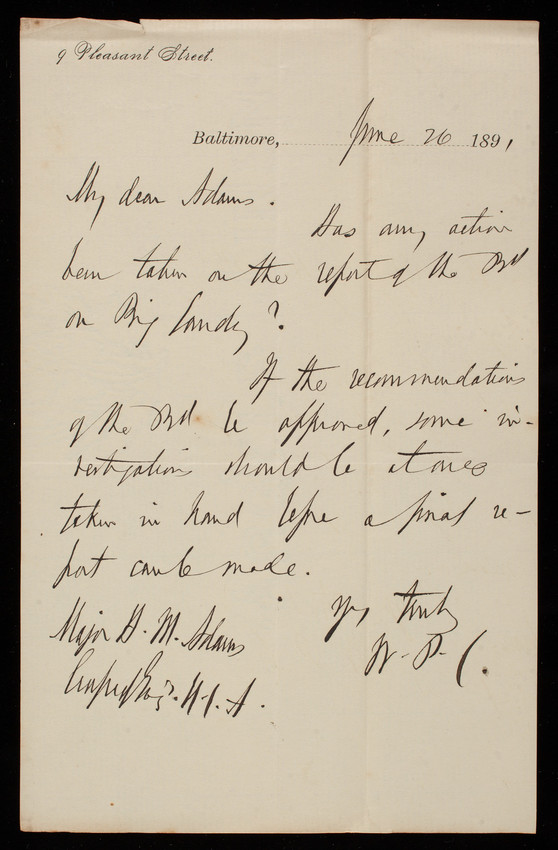 9 Pleasant Street.
Baltimore, June 26 1891
My dear Adams.
Has any action
been taken on the report of the Bd
on Big Sandy?
If the recommendations
of the Bd be approved, some in-
vestigations should be at once
taken in hand before a final re-
port can be made.
Yrs truly
W. P. C.
Major H. M. Adams
Corps of Engrs. U.S.A.